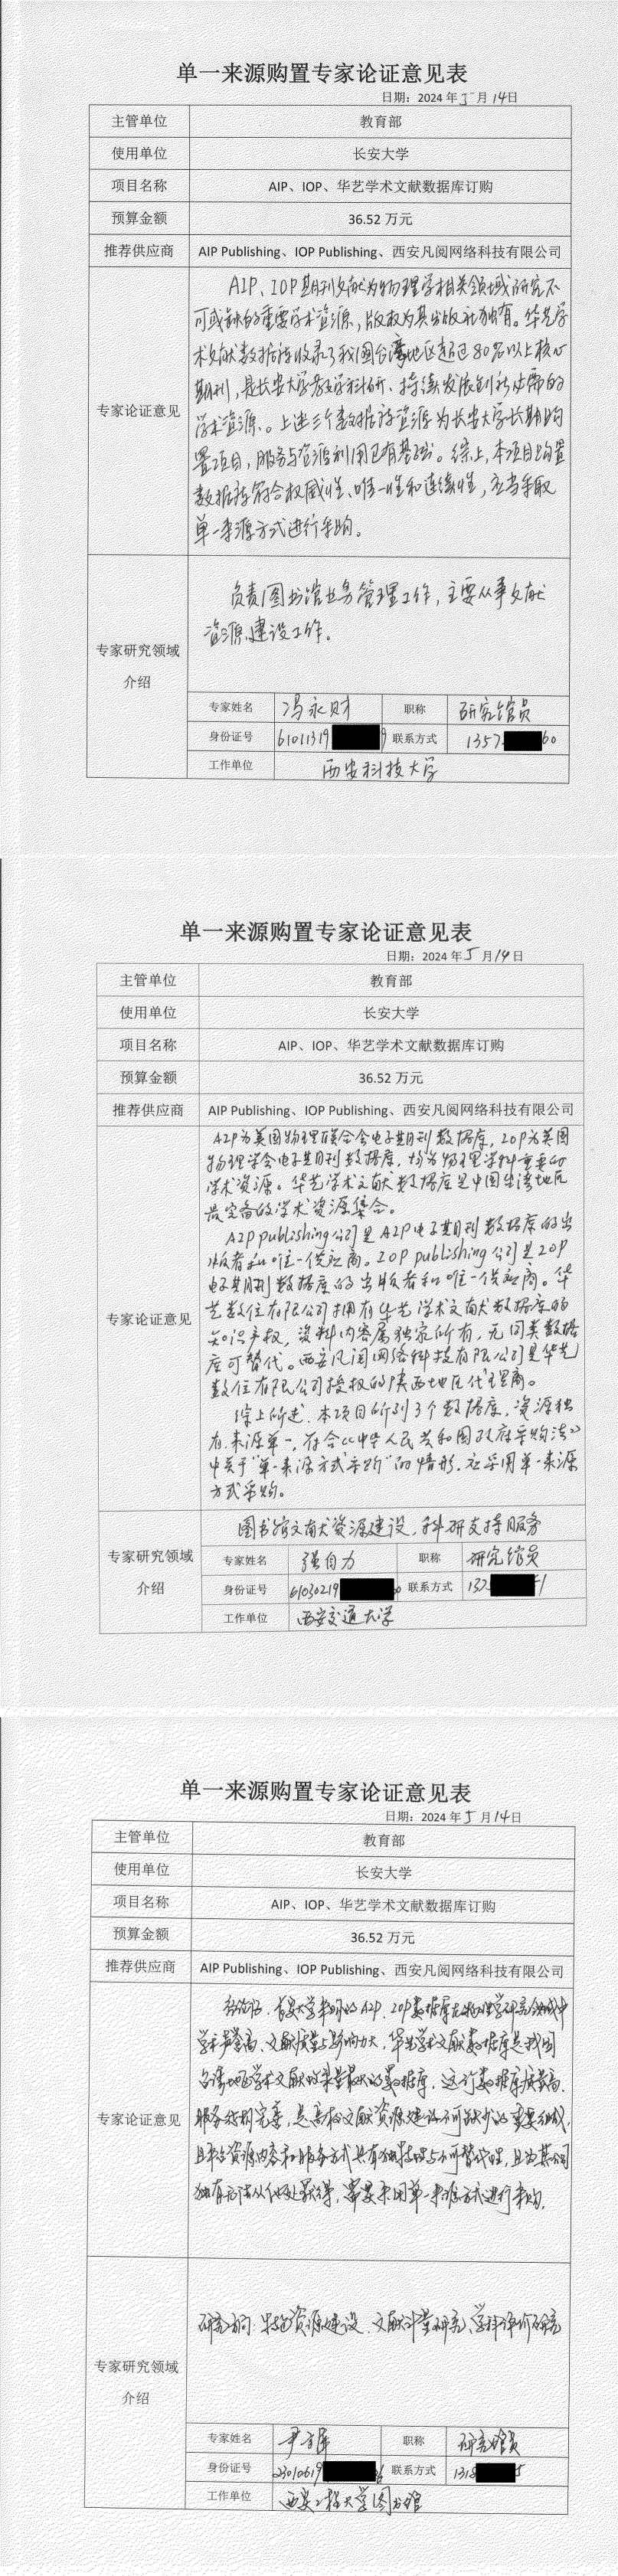 单一来源购置专家论证意见表
日期：2024 年 5 月 14日
主管单位 教育部
使用单位 长安大学
项目名称 AIP、IOP、华艺学术文献数据库订购
预算金额 36.52 万元
推荐供应商 AIP Publishing、IOP Publishing、西安凡阅网络科技有限公司
专家论证意见
AIP、IOP期刊文献为物理学相关领域研究不
可或缺的重要学术资源，版权为其出版社独有。华艺学
术文献数据库收录了我国台湾地区超过80%以上核心
期刊，是长安大学教学科研、持续发展创新必需的
学术资源。上述三个数据库资源为长安大学长期购
置项目，服务与资源利用已有基础。综上，本项目购置
数据库符合权威性、唯一性和连续性，应当采取
单一来源方式进行采购。
专家研究领域
介绍
负责图书馆业务管理工作，主要从事文献
资源建设工作。
专家姓名 冯永财 职称 研究馆员
身份证号 61011319 9 联系方式 1357 60
工作单位 西安科技大学
单一来源购置专家论证意见表
日期：2024 年 5 月 14 日
主管单位 教育部
使用单位 长安大学
项目名称 AIP、IOP、华艺学术文献数据库订购
预算金额 36.52 万元
推荐供应商 AIP Publishing、IOP Publishing、西安凡阅网络科技有限公司
专家论证意见
AIP为美国物理联合会电子期刊数据库，IOP为英国
物理学会电子期刊数据库，均为物理学科重要的
学术资源。华艺学术文献数据库是中国台湾地区
最完备的学术资源集合。
AIP publishing公司是AIP电子期刊数据库的出
版者和唯一供应商。IOP publishing公司是IOP
电子期刊数据库的出版者和唯一供应商。华
艺数位有限公司拥有华艺学术文献数据库的
知识产权，资料内容属独家所有，无同类数据
库可替代。西安凡阅网络科技有限公司是华艺
数位有限公司授权的陕西地区代理商。
综上所述，本项目所列3个数据库，资源独
有，来源单一，符合《中华人民共和国政府采购法》
中关于“单一来源方式采购”的情形，应采用单一来源
方式采购。
专家研究领域
介绍
图书馆文献资源建设，科研支持服务
专家姓名 强自力 职称 研究馆员
身份证号 61030219 0 联系方式 132 1
工作单位 西安交通大学
单一来源购置专家论证意见表
日期：2024 年 5 月 14日
主管单位 教育部
使用单位 长安大学
项目名称 AIP、IOP、华艺学术文献数据库订购
预算金额 36.52 万元
推荐供应商 AIP Publishing、IOP Publishing、西安凡阅网络科技有限公司
专家论证意见
长安大学采购的AIP、IOP数据库在物理学研究领域中
学术声誉高、文献质量与影响力大，华艺学术文献数据库是我国
台湾地区学术文献收录量最大的数据库，这些数据库质量高、
服务机制完善，是高校文献资源建设不可缺少的重要组成，
且各资源内容和服务方式具有独特性与不可替代性，且为其公司
独有无法从他处获得，需要采用单一来源方式进行采购。
专家研究领域
介绍
研究方向：特色资源建设、文献计量研究、学科评价研究
专家姓名 尹方屏 职称 研究馆员
身份证号 23010619 6 联系方式 1318 5
工作单位 西安工程大学图书馆